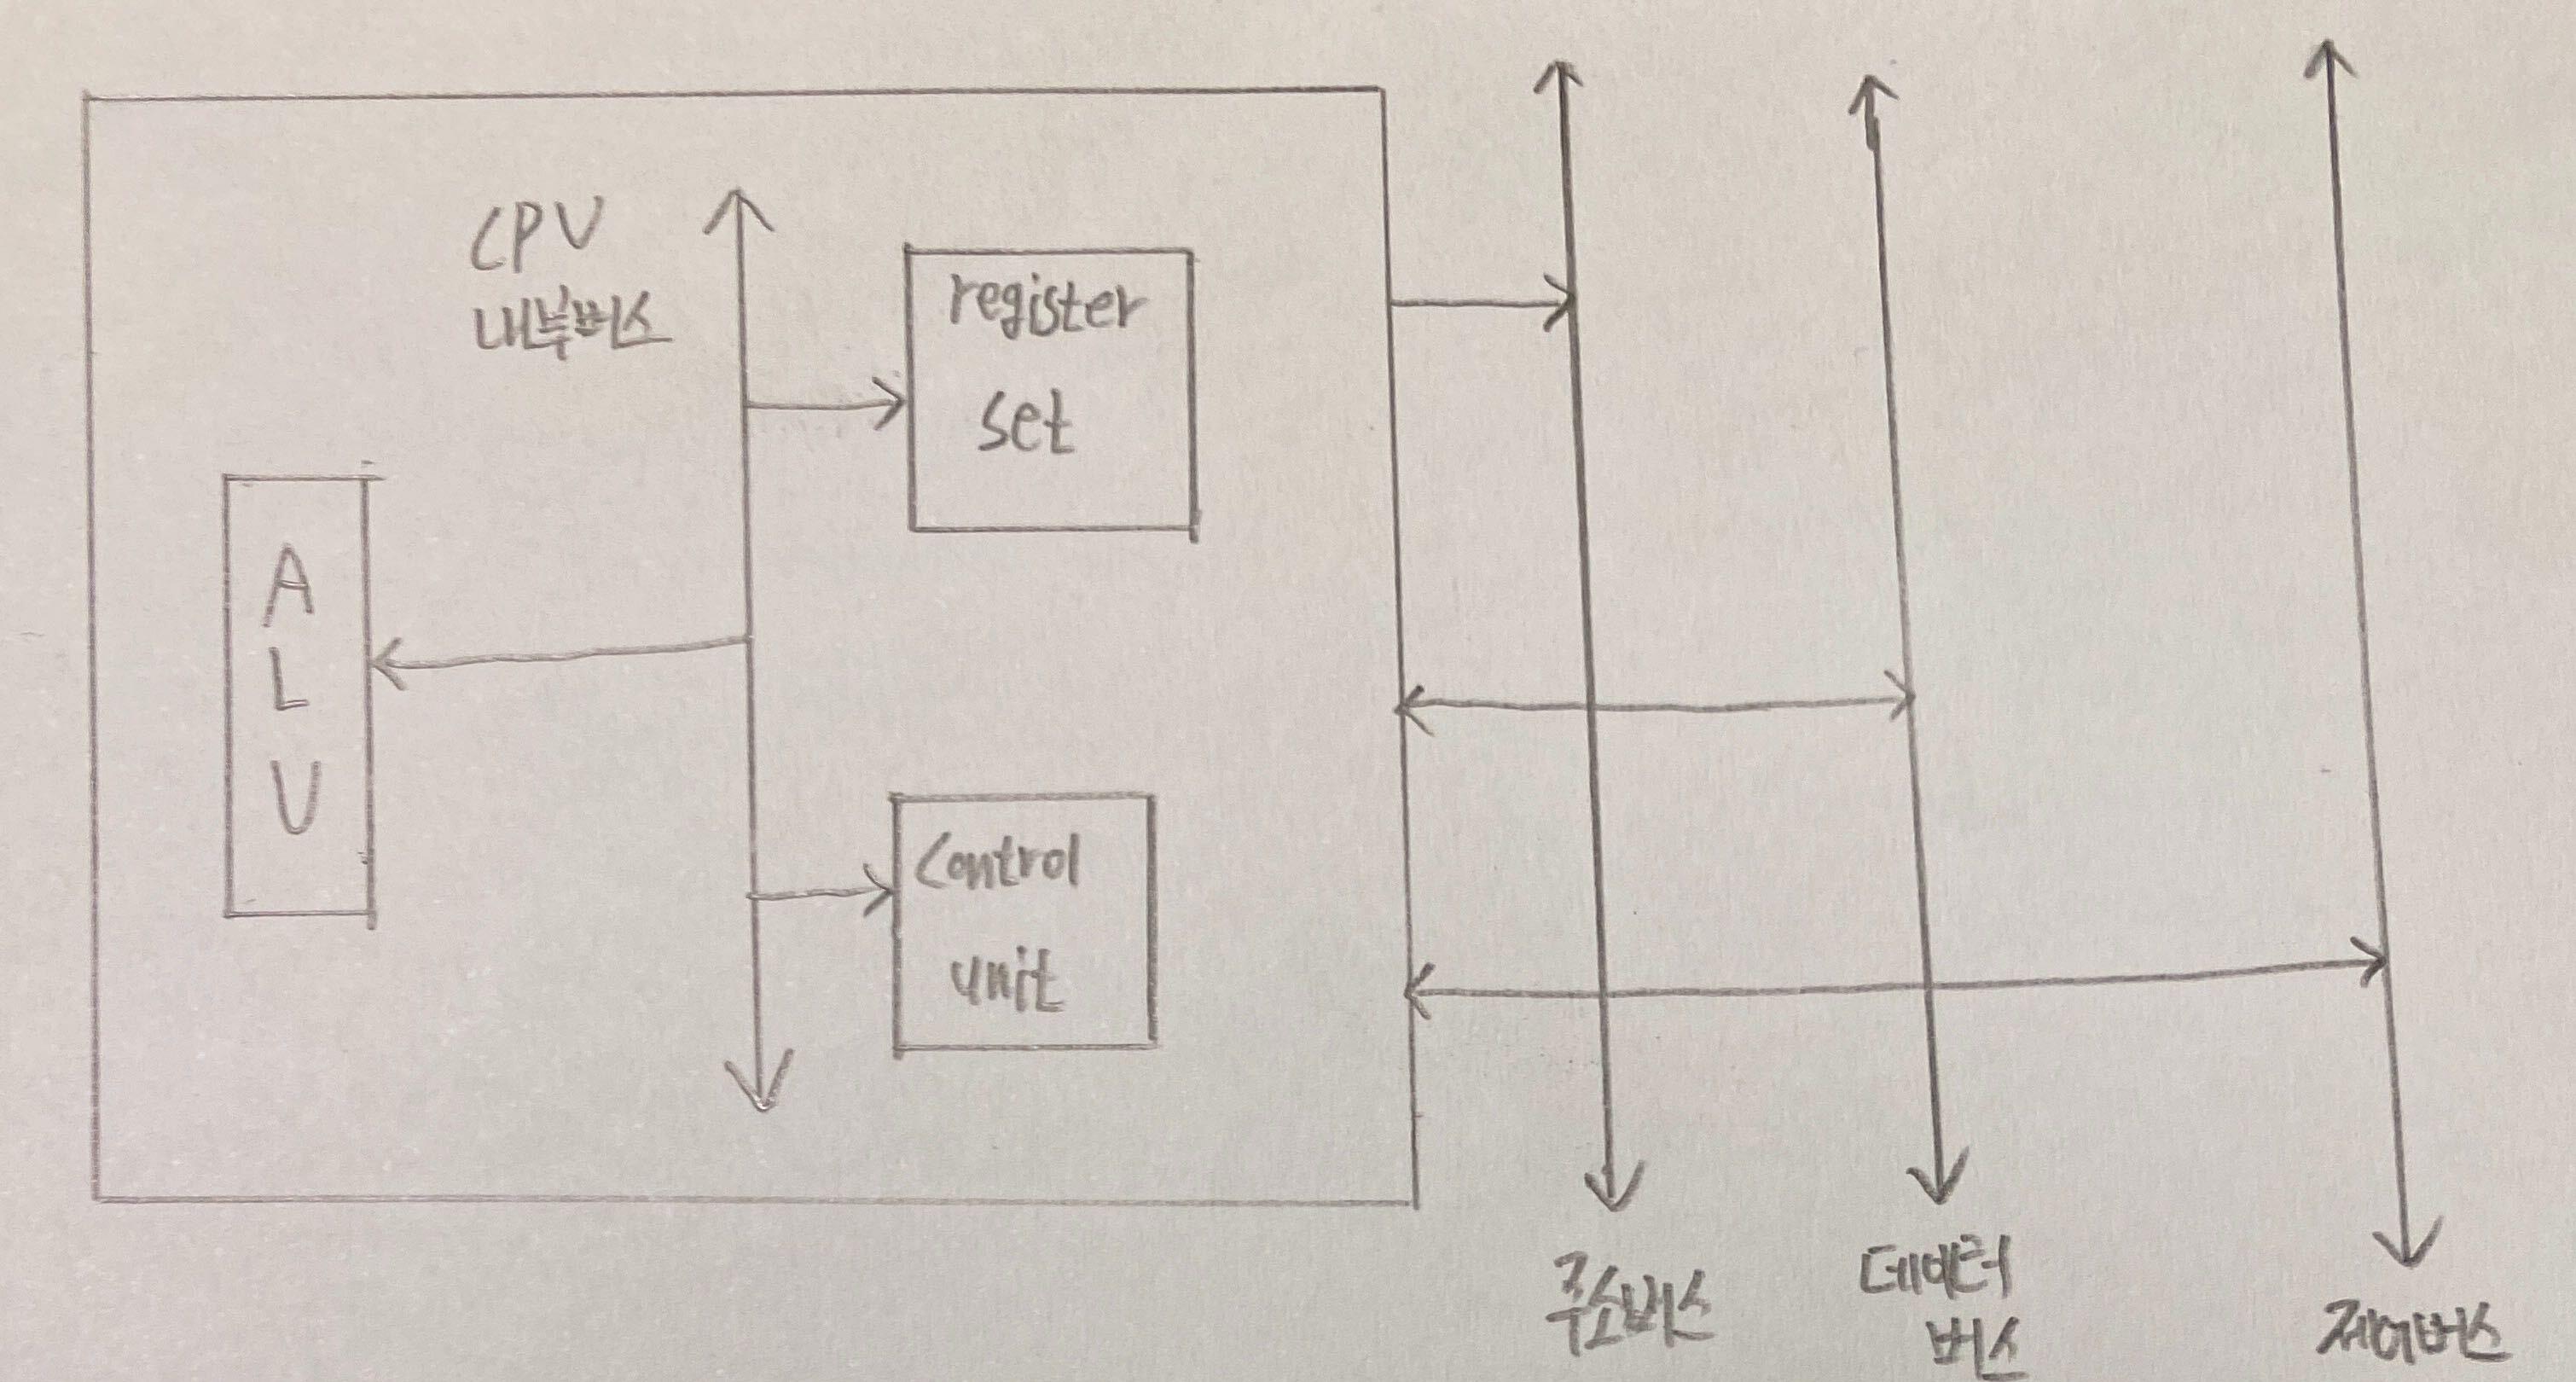 CPU
내부버스
register
set
A
L
U
Control
unit
주소버스
데이터
버스
제어버스